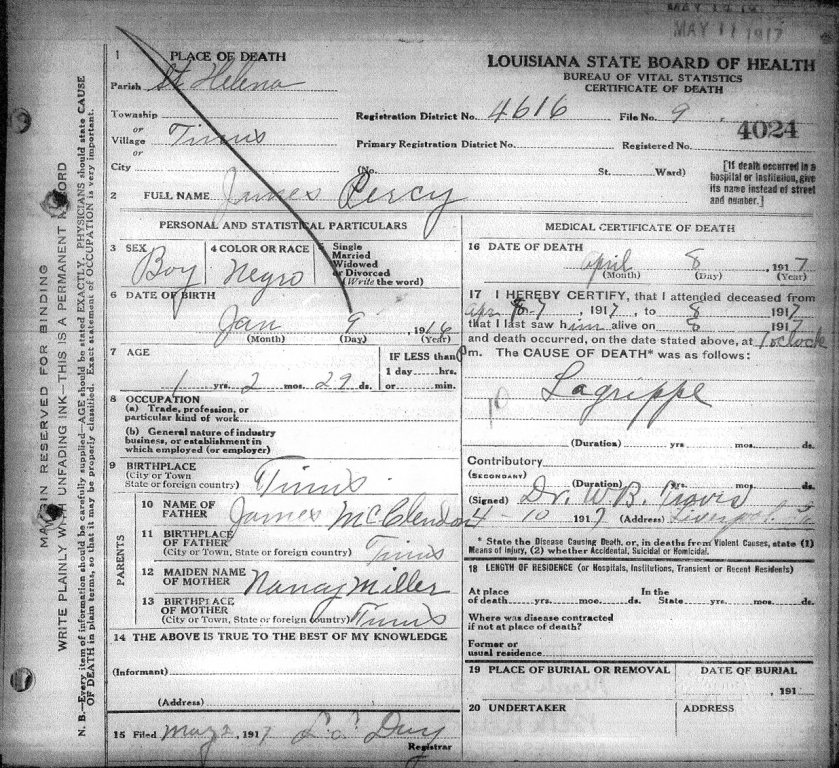 MAY 11 1917
1 PLACE OF DEATH
Parish St Helena
Township
or
Village Tinus
or
City
LOUISIANA STATE BOARD OF HEALTH
BUREAU OF VITAL STATISTICS
CERTIFICATE OF DEATH
Registration District No. 4616 File No. 9
4024
Primary Registration District No. Registered No.
(No. St. Ward)
[If death occurred in a
hospital or institution, give
its name instead of street
and number.]
2 FULL NAME James Percy
PERSONAL AND STATISTICAL PARTICULARS
3 SEX
Boy
4 COLOR OR RACE
Negro
Single
Married
Widowed
or Divorced
(Write the word)
6 DATE OF BIRTH
Jan 9, 1916
(Month) (Day) (Year)
7 AGE
1 yrs. 2 mos. 29 ds.
IF LESS than
1 day hrs.
or min.
8 OCCUPATION
(a) Trade, profession, or
particular kind of work
(b) General nature of industry
business, or establishment in
which employed (or employer)
9 BIRTHPLACE
(City or Town
State or foreign country) Tinus
PARENTS
10 NAME OF
FATHER James McClendon
11 BIRTHPLACE
OF FATHER
(City or Town, State or foreign country) Tinus
12 MAIDEN NAME
OF MOTHER Nancy Miller
13 BIRTHPLACE
OF MOTHER
(City or Town, State or foreign country) Tinus
14 THE ABOVE IS TRUE TO THE BEST OF MY KNOWLEDGE
(Informant)
(Address)
15 Filed May 2, 1917
Registrar
MEDICAL CERTIFICATE OF DEATH
16 DATE OF DEATH
April 8, 1917
(Month) (Day) (Year)
17 I HEREBY CERTIFY, that I attended deceased from
Apr 7, 1917, to 8 1917
that I last saw him alive on 8 1917
and death occurred, on the date stated above, at 1 oclock
m. The CAUSE OF DEATH* was as follows:
Lagrippe
10
(Duration) yrs mos. ds.
Contributory
(SECONDARY)
(Duration) yrs. mos. ds.
(Signed) Dr. W B. Travis
4-10 1917 (Address)
* State the Disease Causing Death, or, in deaths from Violent Causes, state (1)
Means of injury, (2) whether Accidental, Suicidal or Homicidal.
18 LENGTH OF RESIDENCE (or Hospitals, Institutions, Transient or Recent Residents)
At place In the
of death yrs. mos. ds. State yrs. mos. ds.
Where was disease contracted
if not at place of death?
Former or
usual residence
19 PLACE OF BURIAL OR REMOVAL
DATE OF BURIAL
, 191
20 UNDERTAKER
ADDRESS
MARGIN RESERVED FOR BINDING
WRITE PLAINLY WITH UNFADING INK—THIS IS A PERMANENT RECORD
N. B.—Every item of information should be carefully supplied—AGE should be stated EXACTLY, PHYSICIANS should state CAUSE
OF DEATH in plain terms, so that it may be properly classified. Exact statement of OCCUPATION is very important.